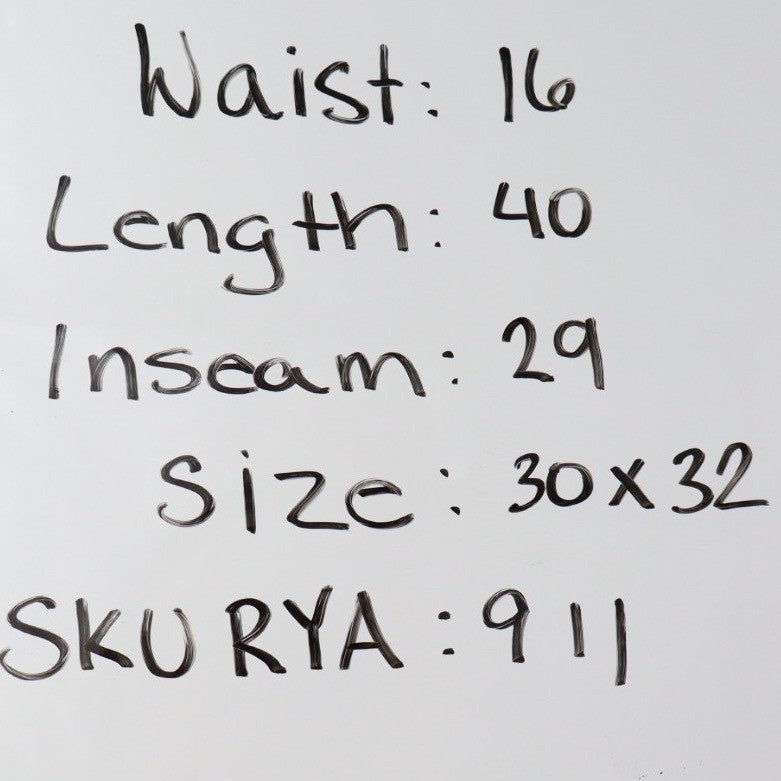 Waist: 16
Length: 40
Inseam: 29
Size: 30x32
SKU RYA: 911